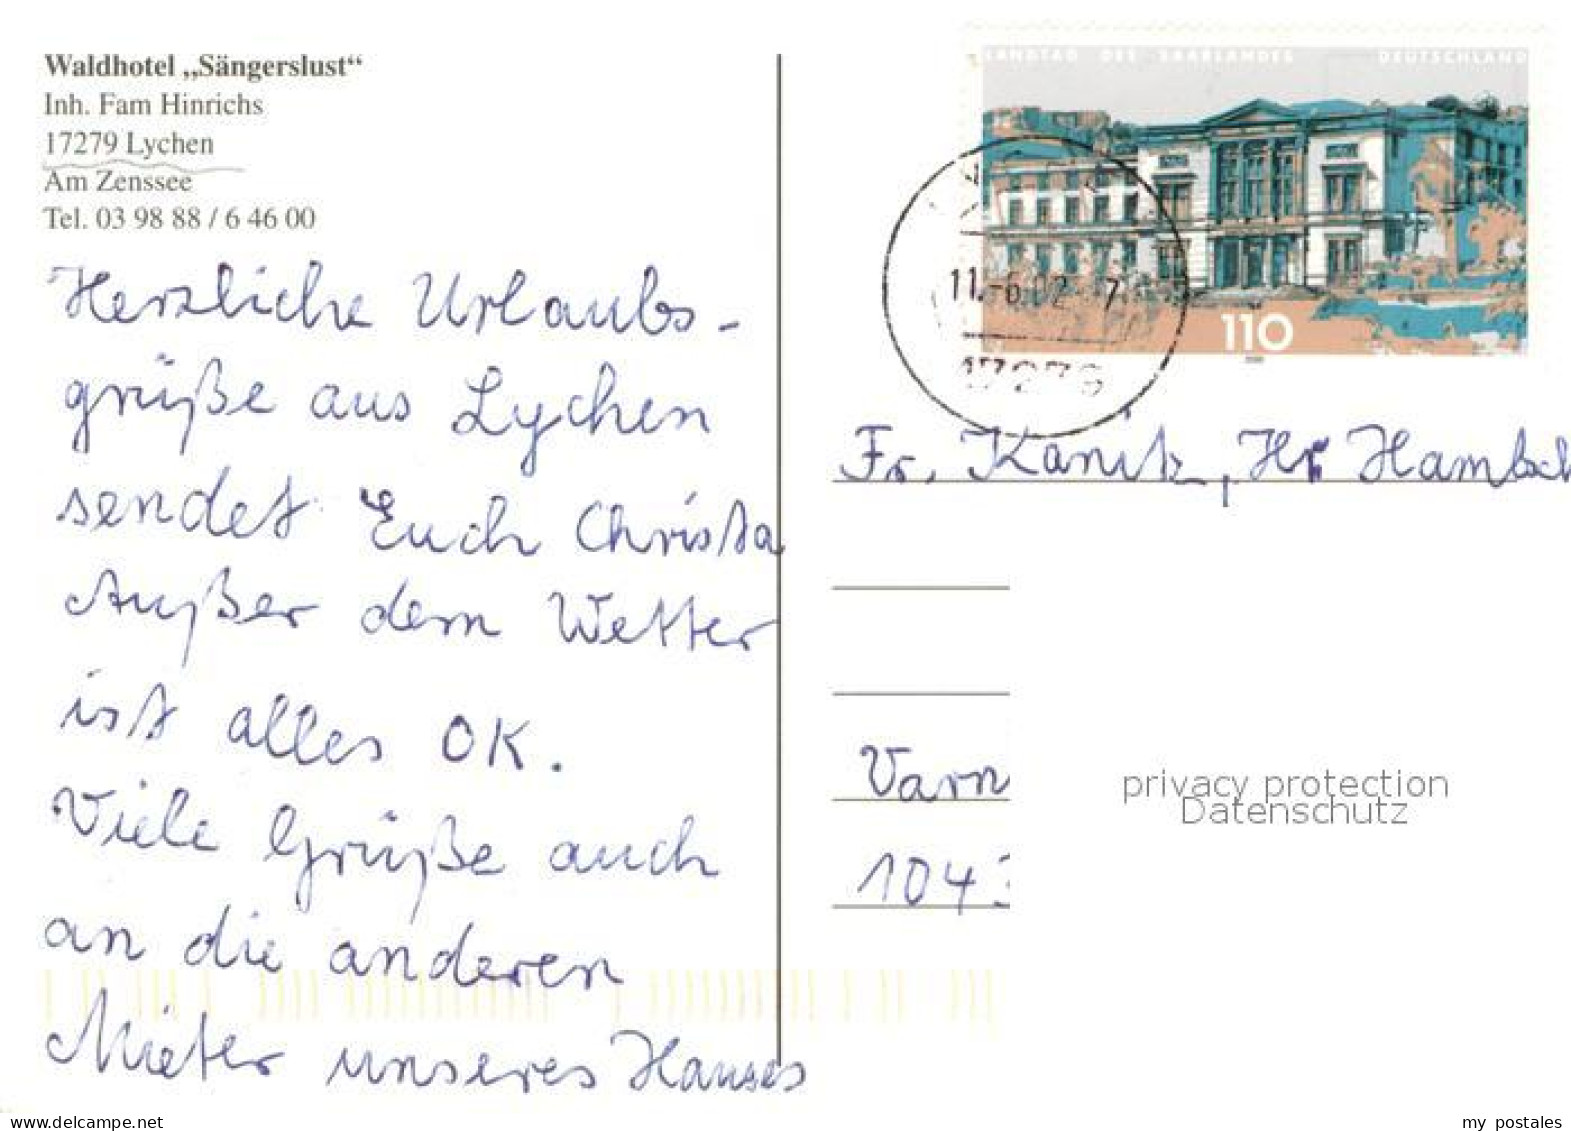 Waldhotel „Sängerslust“
Inh. Fam Hinrichs
17279 Lychen
Am Zenssee
Tel. 03 98 88 / 6 46 00
Herzliche Urlaubs-
grüße aus Lychen
sendet Euch Christa
Außer dem Wetter
ist alles OK.
Viele Grüße auch
an die anderen
Mieter unseres Hauses
LANDTAG DES SAARLANDES DEUTSCHLAND
110
11.-6.02 - 7
17279
Fr. Kanitz, Hr Hambsch
Varn
1043
privacy protection
Datenschutz
www.delcampe.net
my postales